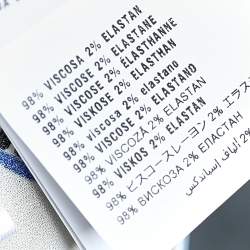 98% VISCOSA 2% ELASTAN
98% VISCOSE 2% ELASTANE
98% VISCOSE 2% ELASTHANNE
98% VISKOSE 2% ELASTHAN
98% viscosa 2% elastano
98% viscose 2% elastano
98% VISCOZĂ 2% ELASTAN
98% VISKOS 2% ELASTAN
98% ビスコースレーヨン 2% エラス
98% ВИСКОЗА 2% ЕЛАСТАН
98% ألياف 2%